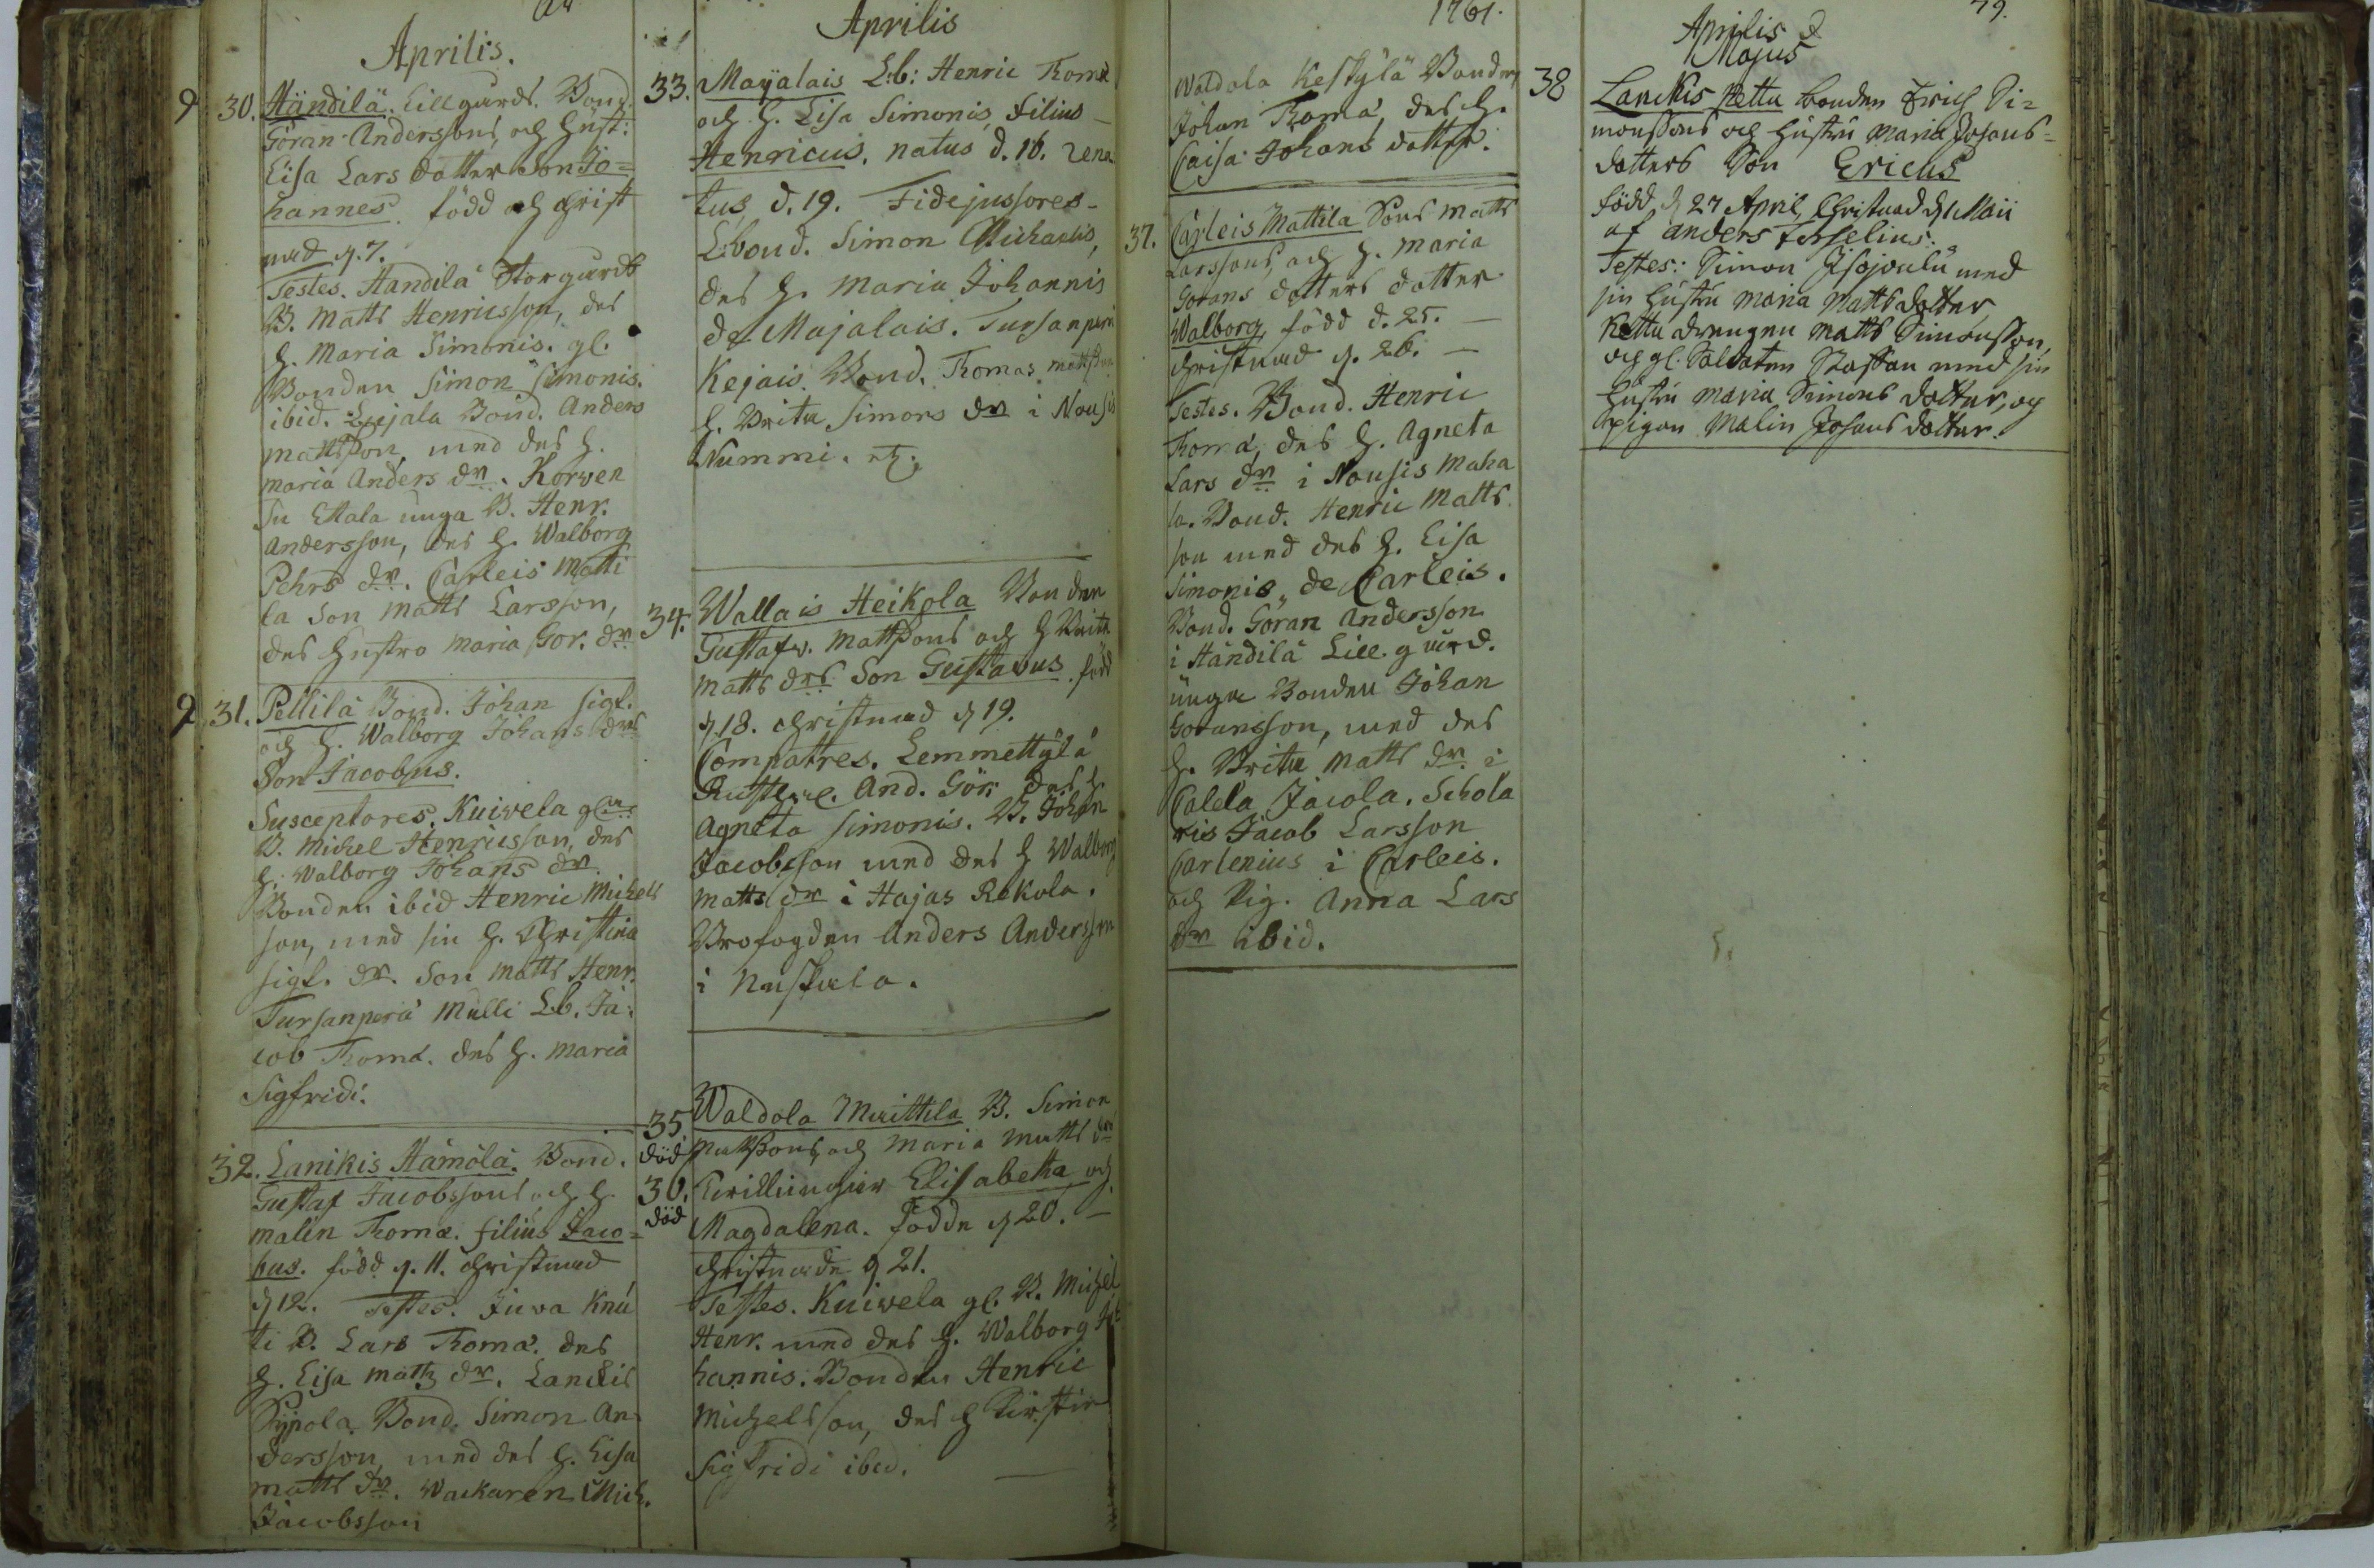 Aprilis.
30. Händilä Lillgårds. Bond.
Göran Anderssons, och Hust:
Lisa Lars dotter Son Jo=
hannes. född och Christ
nad d. 7.
Testes. Händilä Storgårds
B. Matts Henricsson, des
H. Maria Simonis. gl.
Bonden Simon Simonis.
ibid. Bond. Anders
Mattsson, med des H.
Maria Anders dr. Korven
Su Ettala unga B. Henr.
Andersson, des H. Walborg
Pehrs dr. Carleis Matti
la Son Matts Larsson,
des Hustro Maria Gör. dr.
31. Pellilä Bond. Johan Sigf.
och H. Walborg Johans drs
Son Jacobus.
Susceptores. Kuivela gl.
B. Michel Henricsson, des
H. Walborg Johans dr.
Bonden ibid Henric Michels
son, med sin H. Christina
Sigf. dr. Son Matts Henr.
Tursanperä Mälli Lb. Ja:
cob Thomæ. des H. Maria
Sigfridi.
32. Lanikis Hämölä. Bond.
Gustaf Jacobssons, och H.
Malin Thomæ. filius Jaco=
bus. född d. 11. Christnad
d 12. Testes. Juva Knu
ti B. Lars Thomæ. des
H. Lisa Matts dr. Lanckis
Bond. Simon An
dersson, med des H. Lisa
Matts dr. Mich.
Jacobsson
Aprilis
33. Mayalais L:b: Henric Thomæ
och H. Lisa Simonis, filius
Henricus. natus d. 16. rena
tus d. 19. Fidejussores.
L:bond. Simon Michaelis,
des H. Maria Johannis
de Majalais. Tursanperä
Kejais. Bond. Thomas Mattsson
H. Brita Simons dr i Nousis
Nummi. etc.
34. Wallais Heikola Bonden
Gustafv. Mattssons och H Brita
Matts drs Son Gustavus. född
d 18. Christnad d 19.
Compatres. Lemmettylä
And. Gör. des H.
Agneta Simonis. B. Johan
Jacobsson med des H Walborg
Matts dr i Hajas Rekola.
Brofogden Anders Andersson
i
35. Waldola Maittila B. Simon
död Mattssons, och Maria Matts drs
36. Twillingar Elisabetha och
död Magdalena. födde d 20.
Christnade d 21.
Testes. Kuivela gl. B. Michel
Henr. med des H. Walborg Jo
hannis. Bonden Henric
Michelsson, des H Kirstin
Sigfridi ibid.
1761.
Waldola Keskylä Bonden
Johan Thomæ, des H.
Caisa Johans dotter.
37. Carleis Mattila Sons Matts
Larssons, och H. Maria
Görans dotters dotter
Walborg, född d. 25.
Christnad d. 26.
Testes. Bond. Henric
Thomæ, des H. Agneta
Lars dr i Nousis Maha
la. Bond. Henric Matts
son med des H. Lisa
Simonis, de Carleis.
Bond. Göran Andersson
i Händilä Lill gård.
unga Bonden Johan
Göransson, med des
H. Brita Matts dr. i
Calela Jacola. Schola
ris Jacob Larsson
Carlenius i Carleis.
och Pig. Anna Lars
dr ibid.
79.
Aprilis &
Majus
38 Lanckis Kettu bonden Erich Si=
monssons och Hustru Maria Johans=
dotters Son Ericus
född d 27 April, Christnad d 1 Maii
af Anders
Testes: Simon med
sin Hustru Maria Mattsdotter
Kettu drengen Matts Simonsson,
och gl. Soldaten Staffan med sin
Hustru Maria Simons dotter, och
pigan Malin Johans dotter.